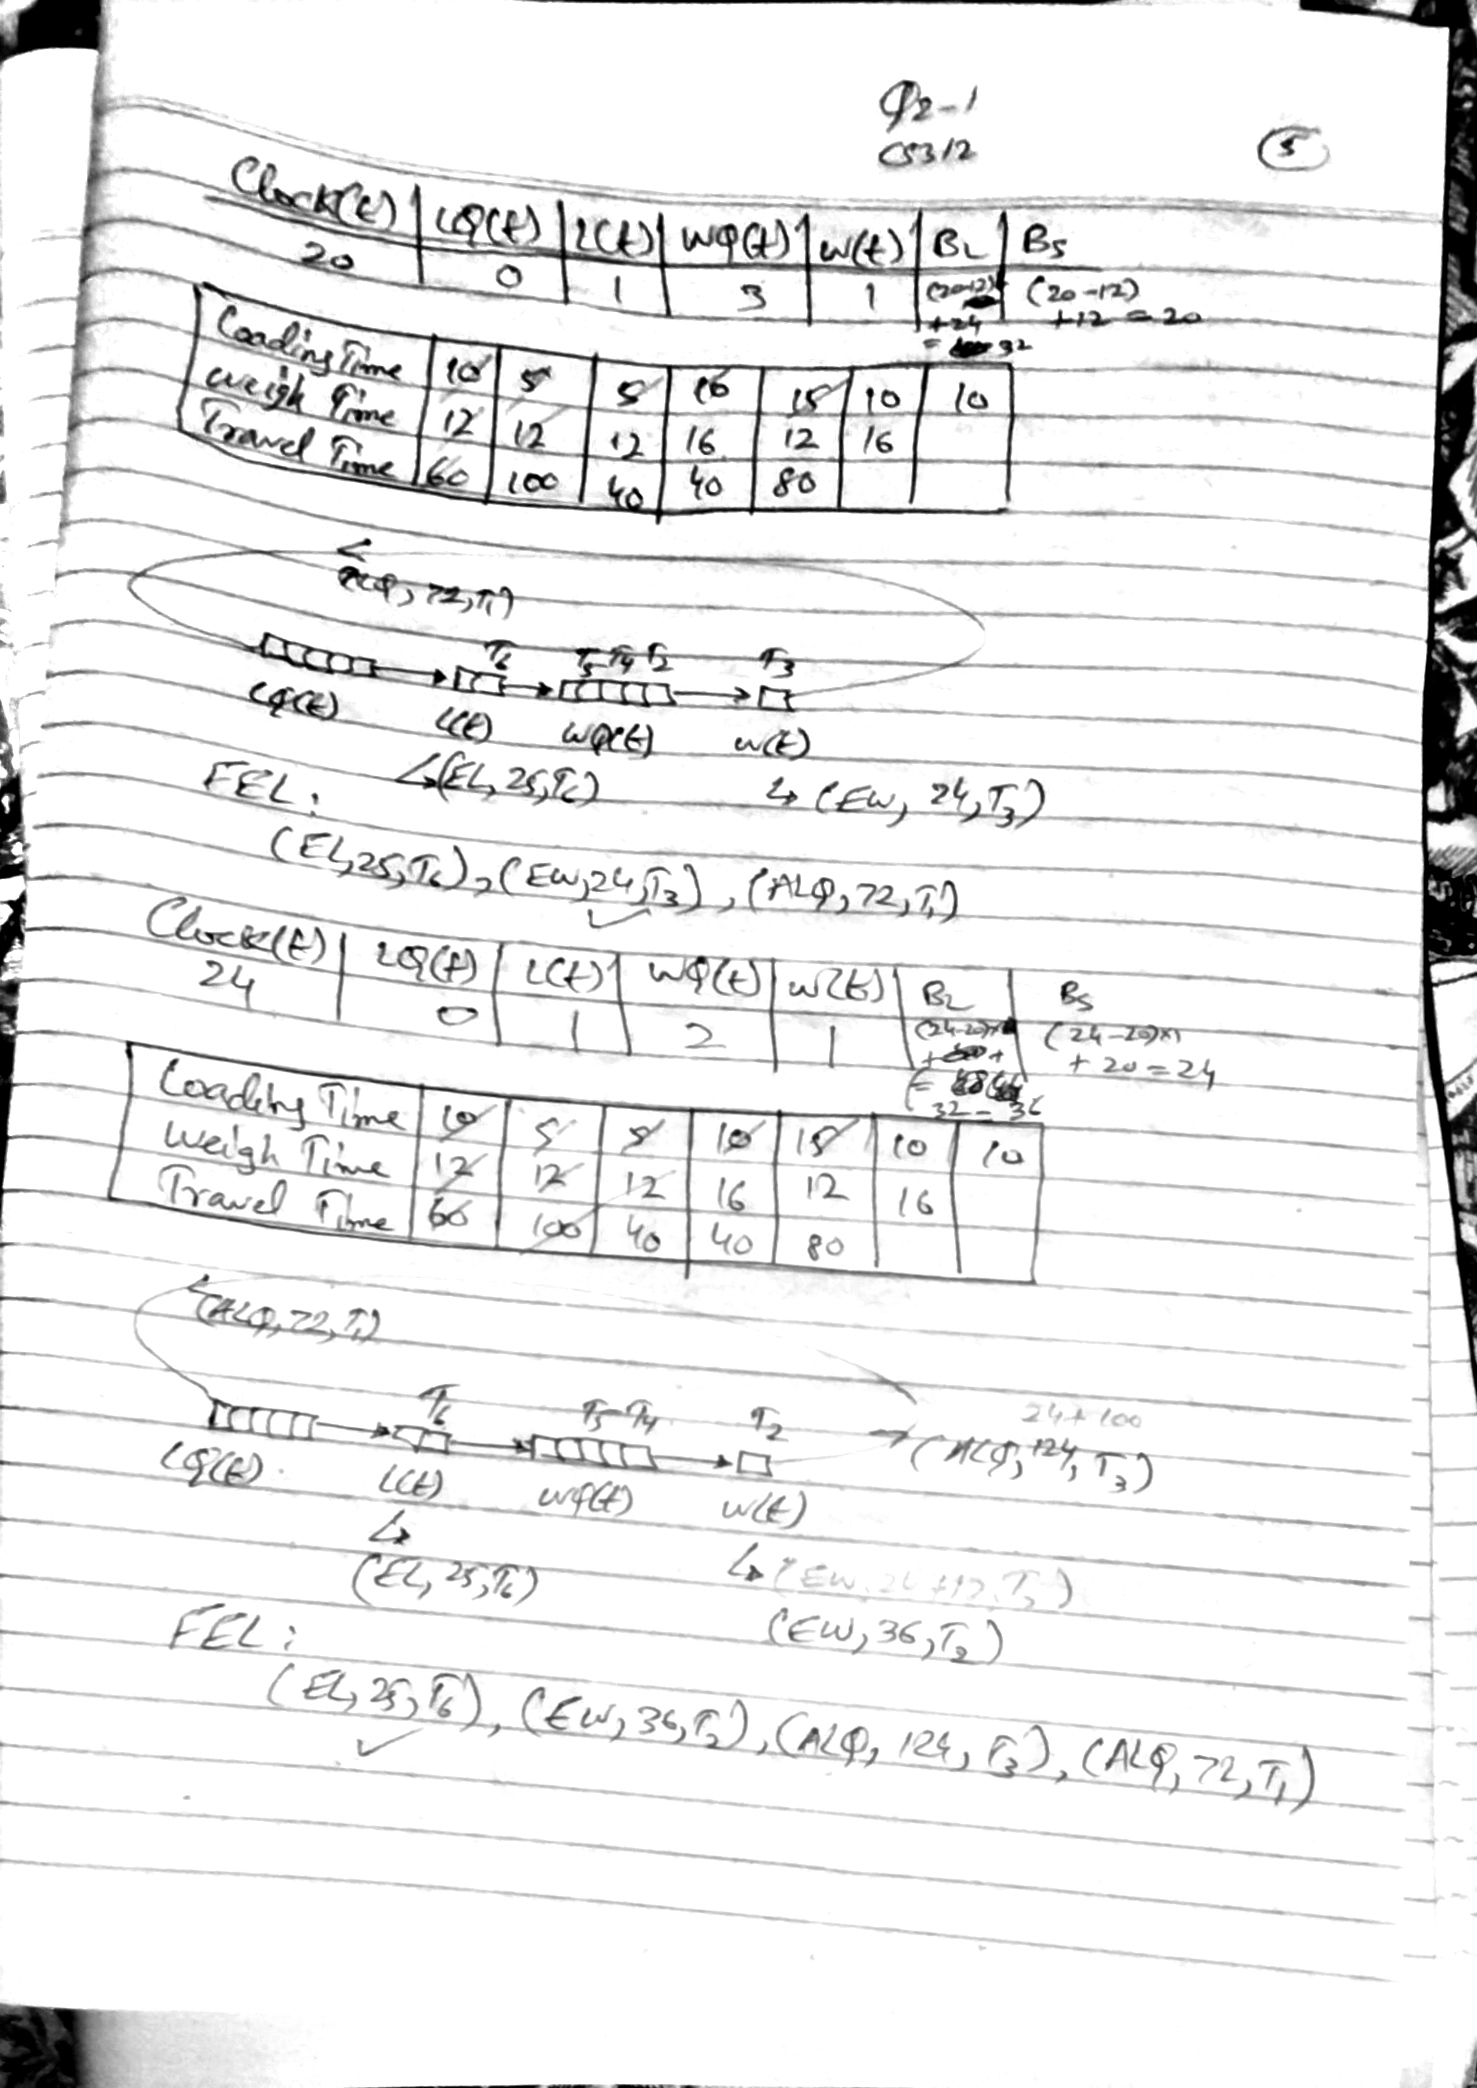 Q2-1
CS312
5
Clock(t) | LQ(t) | L(t) | WQ(t) | W(t) | BL | Bs
20 | 0 | 1 | 3 | 1 | (20-12) +24 = 32 | (20-12) +12 = 20
Loading Time | 10 | 5 | 5 | 10 | 15 | 10 | 10
Weigh Time | 12 | 12 | 12 | 16 | 12 | 16
Travel Time | 60 | 100 | 40 | 40 | 80
(ALQ, 72, T1)
T6 T5 T4 T2 T3
LQ(t) L(t) WQ(t) W(t)
↳(EL, 25, T6) ↳ (EW, 24, T3)
FEL:
(EL, 25, T6), (EW, 24, T3), (ALQ, 72, T1)
Clock(t) | LQ(t) | L(t) | WQ(t) | W(t) | BL | Bs
24 | 0 | 1 | 2 | 1 | (24-20)×1 + 32 = 36 | (24-20)×1 + 20 = 24
Loading Time | 10 | 5 | 5 | 10 | 15 | 10 | 10
Weigh Time | 12 | 12 | 12 | 16 | 12 | 16
Travel Time | 60 | 100 | 40 | 40 | 80
(ALQ, 72, T1)
24+100
T6 T5 T4 T2 → (ALQ, 124, T3)
LQ(t) L(t) WQ(t) W(t)
↳
(EL, 25, T6) ↳ (EW, 24+12, )
(EW, 36, T2)
FEL:
(EL, 25, T6), (EW, 36, T2), (ALQ, 124, T3), (ALQ, 72, T1)